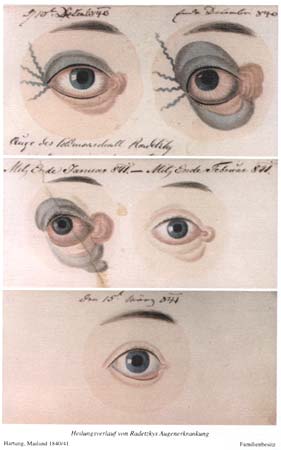 9/10t 840
Ende Dezember 840
Auge des Feldmarschall Radetzky
Mitz Ende Januar 841. — Mitz Ende Februar 841.
den 15t März 841
Heilungsverlauf von Radetzkys Augenerkrankung
Hartung, Mailand 1840/41
Familienbesitz